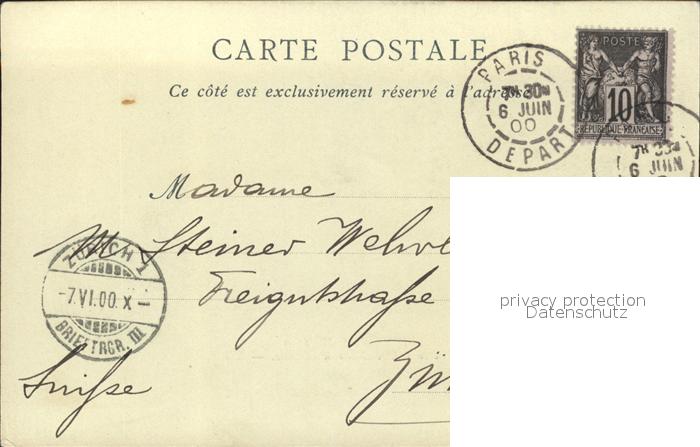 CARTE POSTALE
Ce côté est exclusivement réservé à l'adresse
PARIS
7H 30
6 JUIN
00
DEPART
POSTE
10
REPUBLIQUE FRANÇAISE
7H 30
6 JUIN
Madame
M Steiner
ZÜRICH 1
-7.VI.00.X-
BRIEFTRGR. III
Suisse
privacy protection
Datenschutz